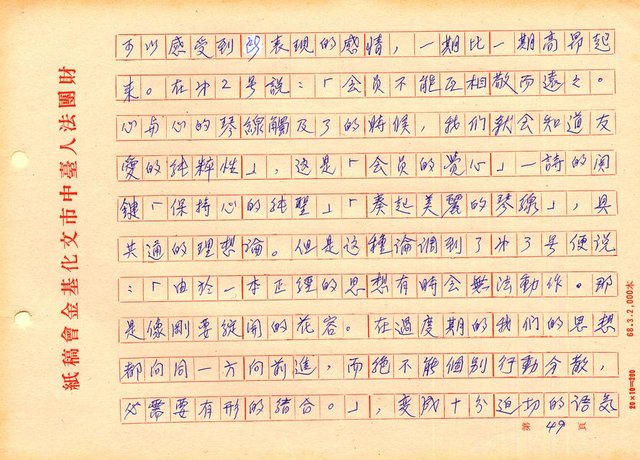 可以感受到所表現的感情，一期比一期高昂起
来。在冲2号說：「会员不能互相散而遠之。
心与心的琴線觸及了的時候，我们就会知道友
愛的純粹性」，这是「会员的覺心」一詩的関
鍵「保持心的純聖」「奏起美麗的琴線」，具
共通的理想論。但是这種論调到了冲3号便说
：「由於一本正經的思想有時会無法動作。那
是像剛要綻開的花容。在過度期的我们的思想
都向同一方向前進，而絕不能個別行動分散，
必需要有形的結合。」，変成十分迫切的语気
第49頁
財團法人臺中市文化基金會稿紙
68.3.2,000本
20×10=200